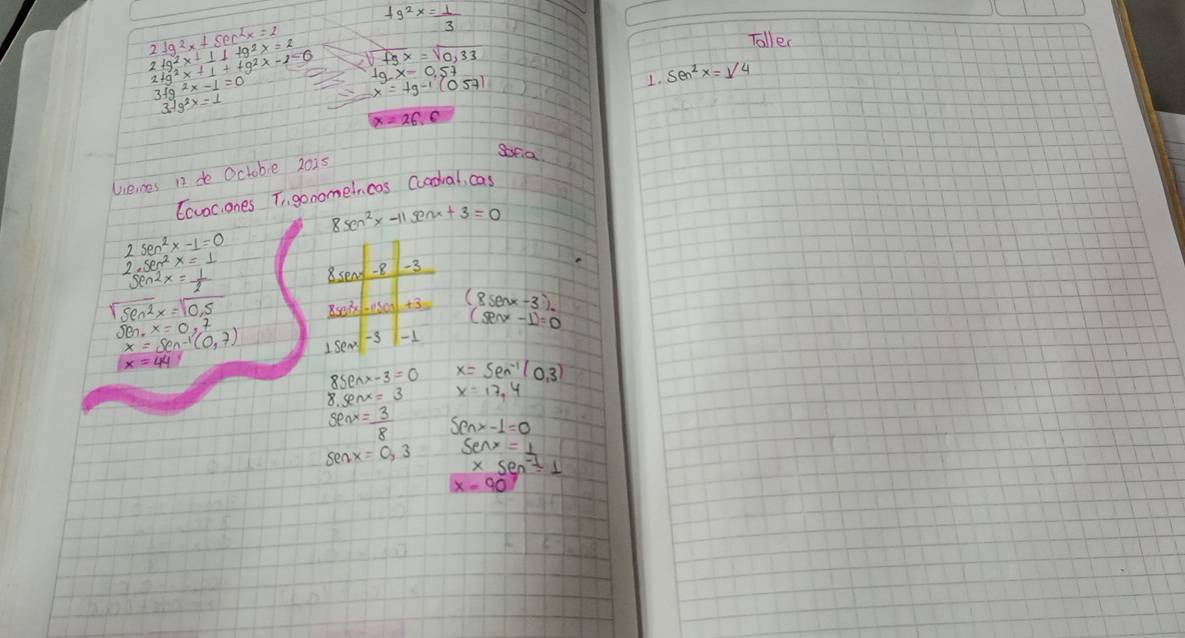 2tg²x + sec²x = 2
2tg²x + 1 + tg²x = 2
2tg²x + 1 + tg²x - 2 = 0
3tg²x - 1 = 0
3tg²x = 1
tg²x = 1/3
√tgx = √0,33
tg x = 0,57
x = tg⁻¹(0 57)
x = 26.6
Sofia
Vieines 17 de Octobre 2025
Ecuaciones Trigonometricas Cuadraticas
2 sen²x - 1 = 0
2.sen²x = 1
sen²x = 1/2
√sen²x = √0,5
sen.x = 0,7
x = sen⁻¹(0,7)
x = 44
8sen²x - 11 senx + 3 = 0
8senx -8 -3
8sen²x -11sen +3
1senx -3 -1
(8senx - 3).
(senx - 1) = 0
8senx - 3 = 0
8.senx = 3
senx = 3/8
senx = 0,3
x = sen⁻¹(0,3)
x = 17,4
senx - 1 = 0
senx = 1
x sen⁻¹ = 1
x = 90
Taller
1. sen²x = √4